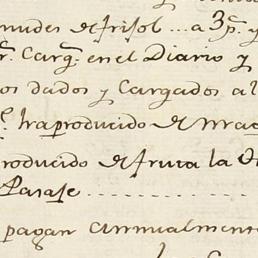 mudes de frisol ... a 3p.s y
r. Carg.n en el Diario y
os dados y Cargados al
haproducido de
roducido de fruta la
Parage ..........
pagan annualmente